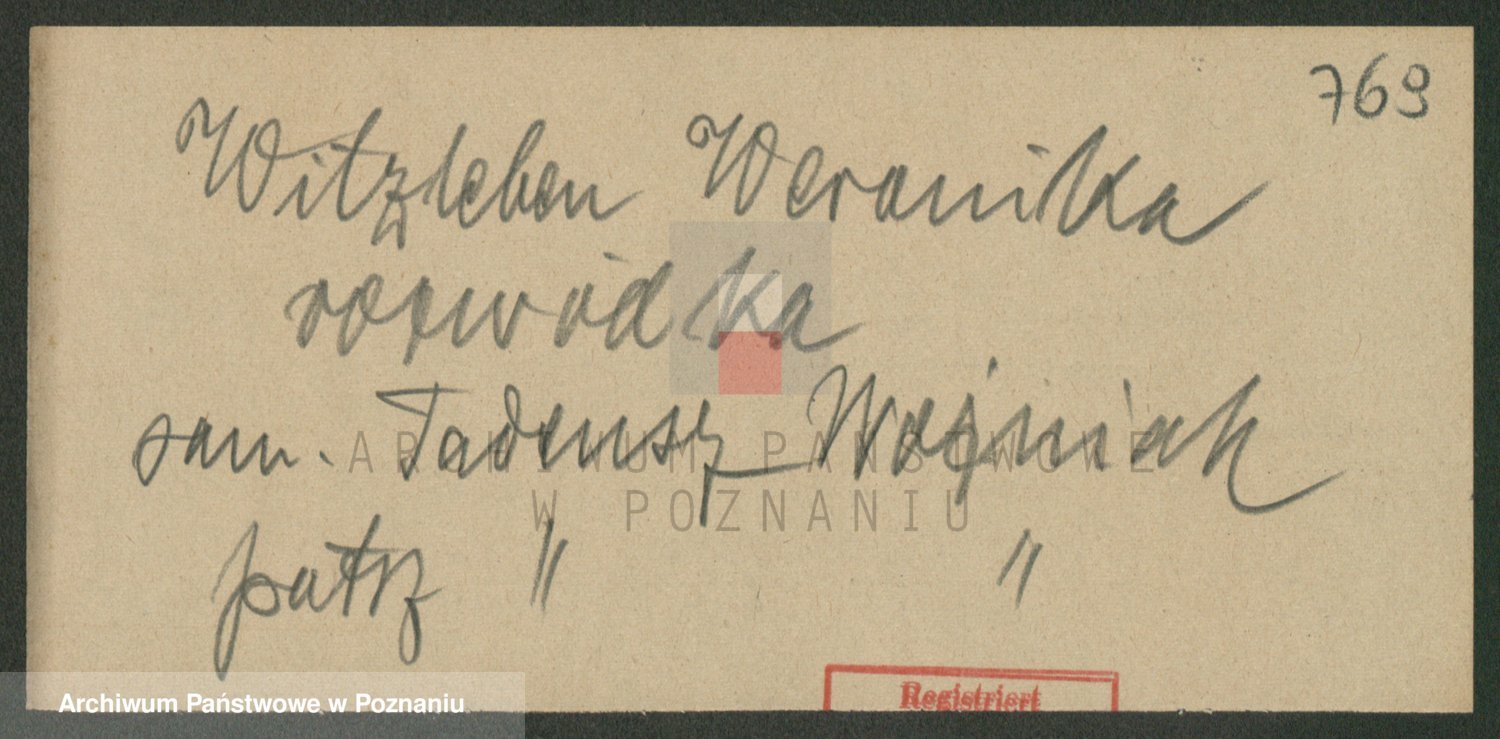 769
Witzleben Weronika
rozwódka
zam. Tadeusz Woźniak
patrz " "
ARCHIWUM PAŃSTWOWE
W POZNANIU
Registriert
Archiwum Państwowe w Poznaniu